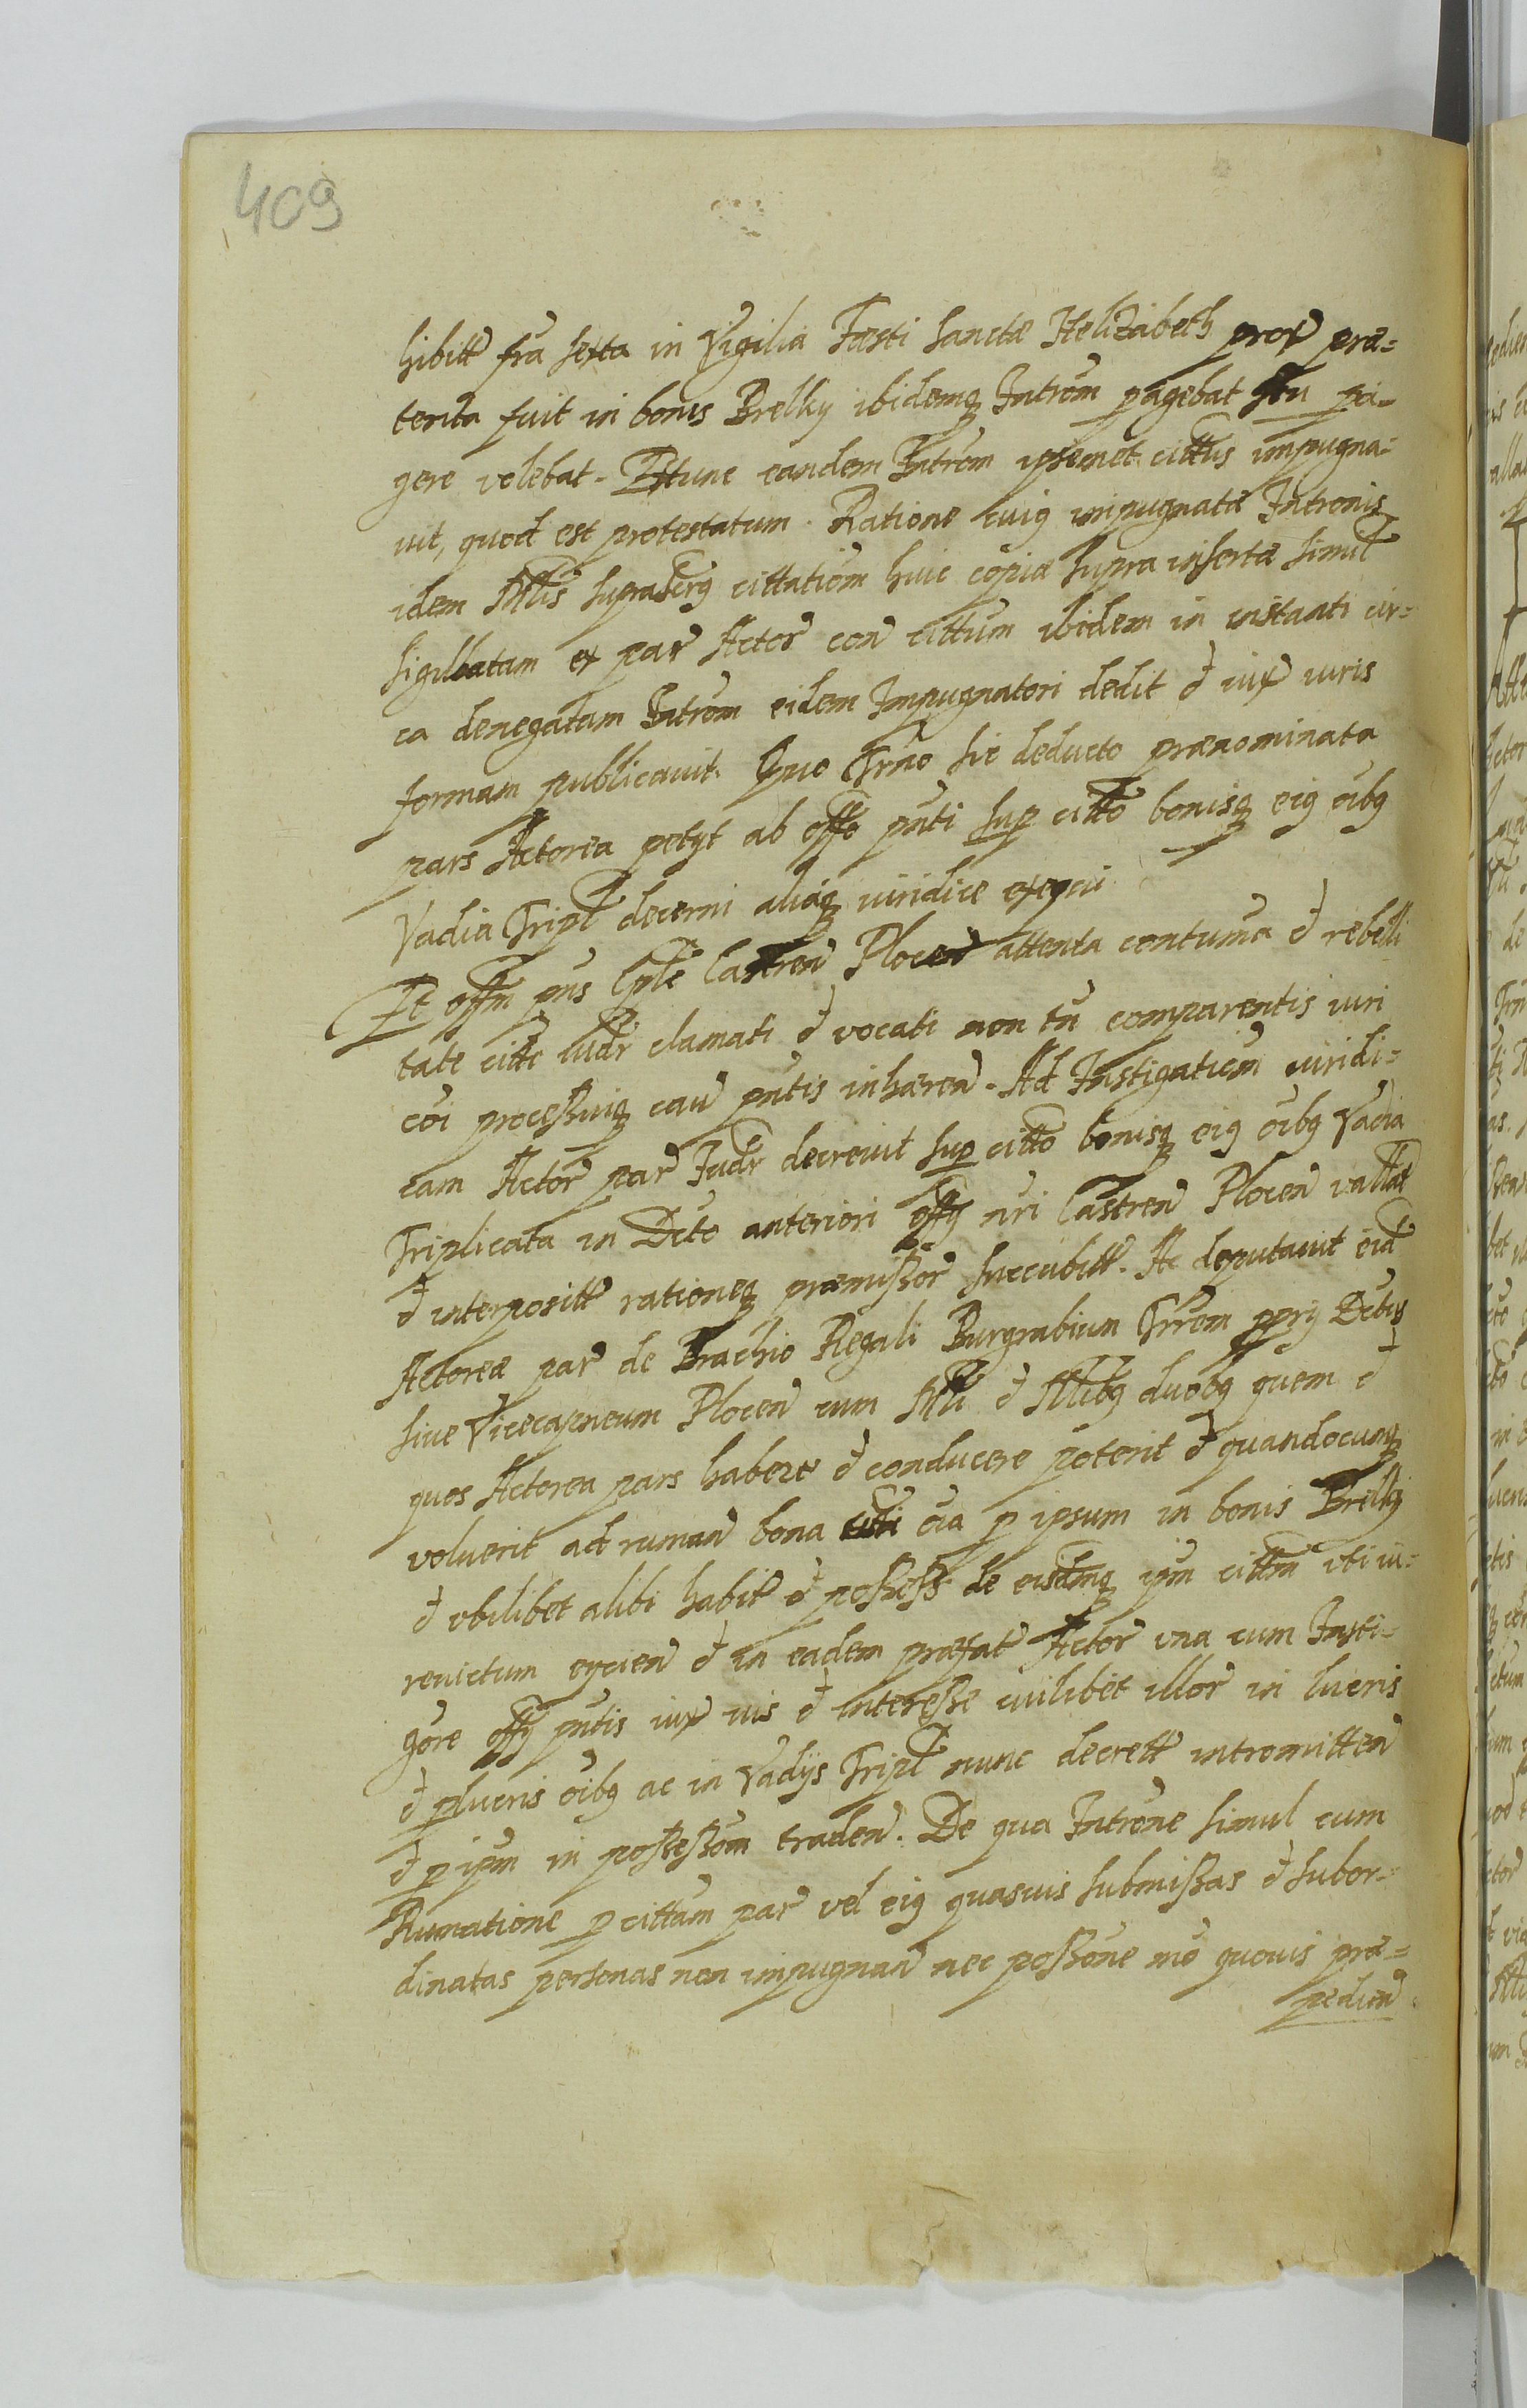 409
hibitt fra sexta in Vigilia Fæsti Sanctæ Helizabeth prox præ=
terita fuit in bonis Brelky ibidemq Introm pagebat seu pa=
gere volebat. Extunc eandem Introm ipsemet cittus impugna=
vit, quod est protestatum. Ratione cuig impugnatæ Intronis
idem Mlis suprascrg cittatiom huic copiæ supra insertæ simul
sigillatam ex par Actor con cittum ibidem in instanti cir=
ca denegatam Introm eidem Impugnatori dedit et iux iuris
formam publicavit. Quo Trno sic deducto prænominata
pars Actorea petyt ab offo pnti sup citto bonisq eig oibg
Vadia Tripl decerni aliaq iuridice exequi
Et offm pns Cple Castren Plocen attenta contuma et rebelli
tate citti iudr clamati et vocati non tn comparentis iuri
coi processuiq cau pntis inhæren. Ad Instigatiom iuridi=
cam Actor par Iudr decrevit sup citto bonisq eig oibg Vadia
Triplicata in Dcto anteriori offy nri Castren Plocen vallat
et interposit rationeq præmissor succubitt. Ac deputavit eid
Actoreæ par de Brachio Regali Burgrabium Trrom ppry Dcbus
sive Vicecapneum Plocen cum Mli et Nlibg duobg quem et
quos Actorea pars habere et conducere poterit et quandocunq
voluerit ad ruman bona citti oia p ipsum in bonis Brelky
et ubilibet alibi habit et possess de eisdmq ipm cittm uti iu=
revictum eycien et in eadem præfat Actor una cum Insti=
gore offy pntis iux ius et interesse cuilibet illor in lucris
et plucris oibg ac in Vadys Tripl nunc decrett intromitten
et p ipm in possessom traden. De qua Introne simul cum
Rumatione p cittam par vel eig quasvis submissas et subor=
dinatas personas non impugnan nec possone mo quovis præ=
pedien